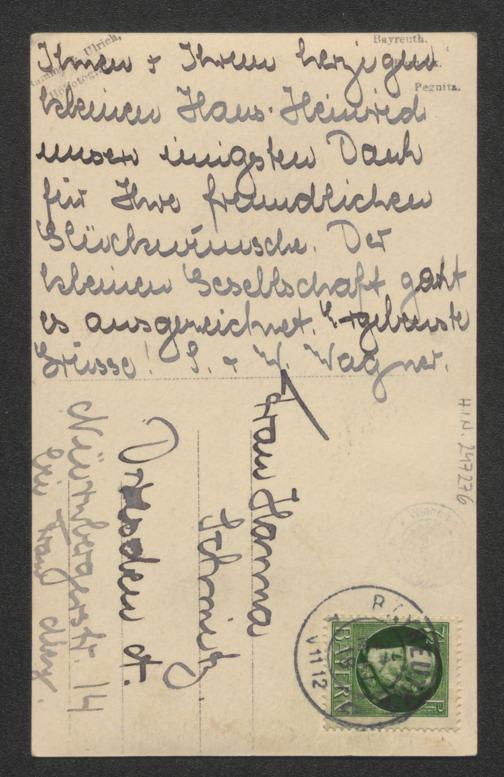 Ulrich,
Bayreuth.
Pegnitz.
Ihnen + Ihrem herzigen
kleinen Hans-Heinrich
unsern innigsten Dank
für Ihre freundlichen
Glückwünsche. Der
kleinen Gesellschaft geht
es ausgezeichnet. Ergebenste
Grüsse! S. + W. Wagner.
Frau Hanna
Dresden A.
Nürnbergerstr. 14
H.I.N. 247276
BAYREUTH
V 11 12
BAYERN